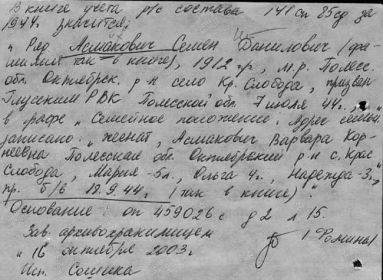 В книге учета р/с состава 141 сп 85 сд за
1944 значится:
"Ряд Асмакович Семен Данилович (фа-
милия так в книге), 1912 г.р., м.р. Полесс.
обл. Октябрск. р-н село Кр. Слобода, призван
Глусским РВК Полесской обл. 7 июля 44 г.,
в графе "Семейное положение. Адрес семьи"
записано: "женат, Асмакович Варвара Кор-
неевна Полесская обл. Октябрьский р-н с. Крас
Слобода, Мария - 5 л., Ольга 4 г., Надежда - 3",
пр. б/в 18.9.44. (так в книге)".
Основание: оп 459026 с д 2 л 15.
Зав. архивохранилищем
"16" октября 2003 г.
Исп.